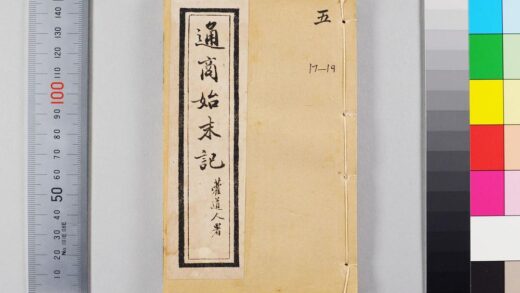 五
17—19
通商始末記
道人署
140
130
120
110
100
90
80
70
60
50
40
30
20
10